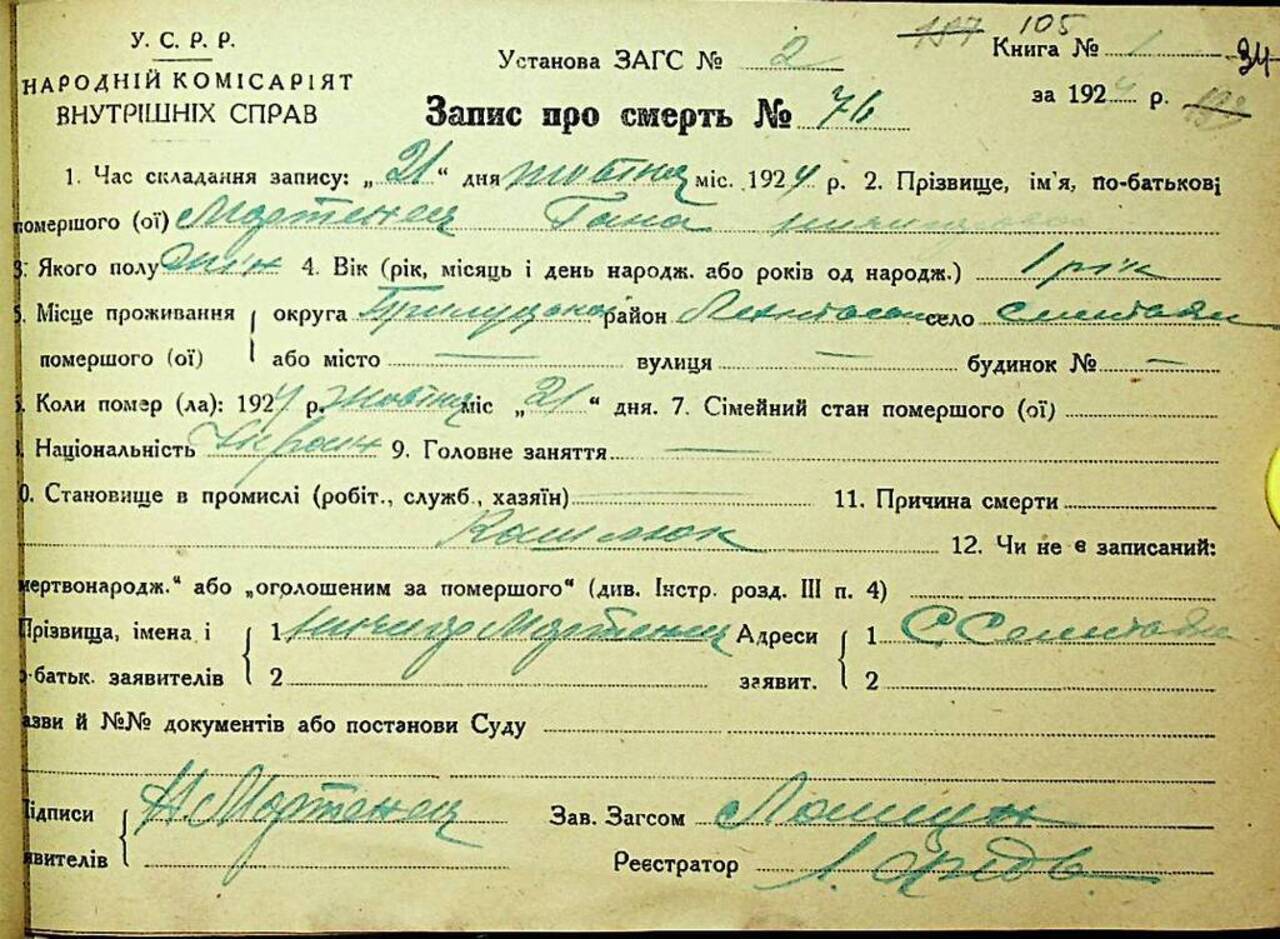 У. С. Р. Р.
НАРОДНІЙ КОМІСАРІЯТ
ВНУТРІШНІХ СПРАВ
Установа ЗАГС № 2
105
Книга № 1
34
за 1924 р.
Запис про смерть № 76
1. Час складання запису: „21“ дня жовтня міс. 1924 р. 2. Прізвище, ім'я, по-батькові
помершого (ої) Мартенец Гана
3. Якого полу жін 4. Вік (рік, місяць і день народж. або років од народж.) 1 рік
5. Місце проживання округа Прилуцька район село
помершого (ої) або місто — вулиця — будинок № —
Коли помер (ла): 1924 р. жовтня міс „21“ дня. 7. Сімейний стан помершого (ої)
Національність Україн 9. Головне заняття —
0. Становище в промислі (робіт., служб., хазяїн) — 11. Причина смерти
Кашлюк 12. Чи не є записаний:
мертвонародж.“ або „оголошеним за помершого“ (див. Інстр. розд. III п. 4)
Прізвища, імена і 1 Ничипір Мартенец Адреси 1
по-батьк. заявителів 2 заявит. 2
азви й №№ документів або постанови Суду
ідписи Н. Мартенец Зав. Загсом
явителів Реєстратор